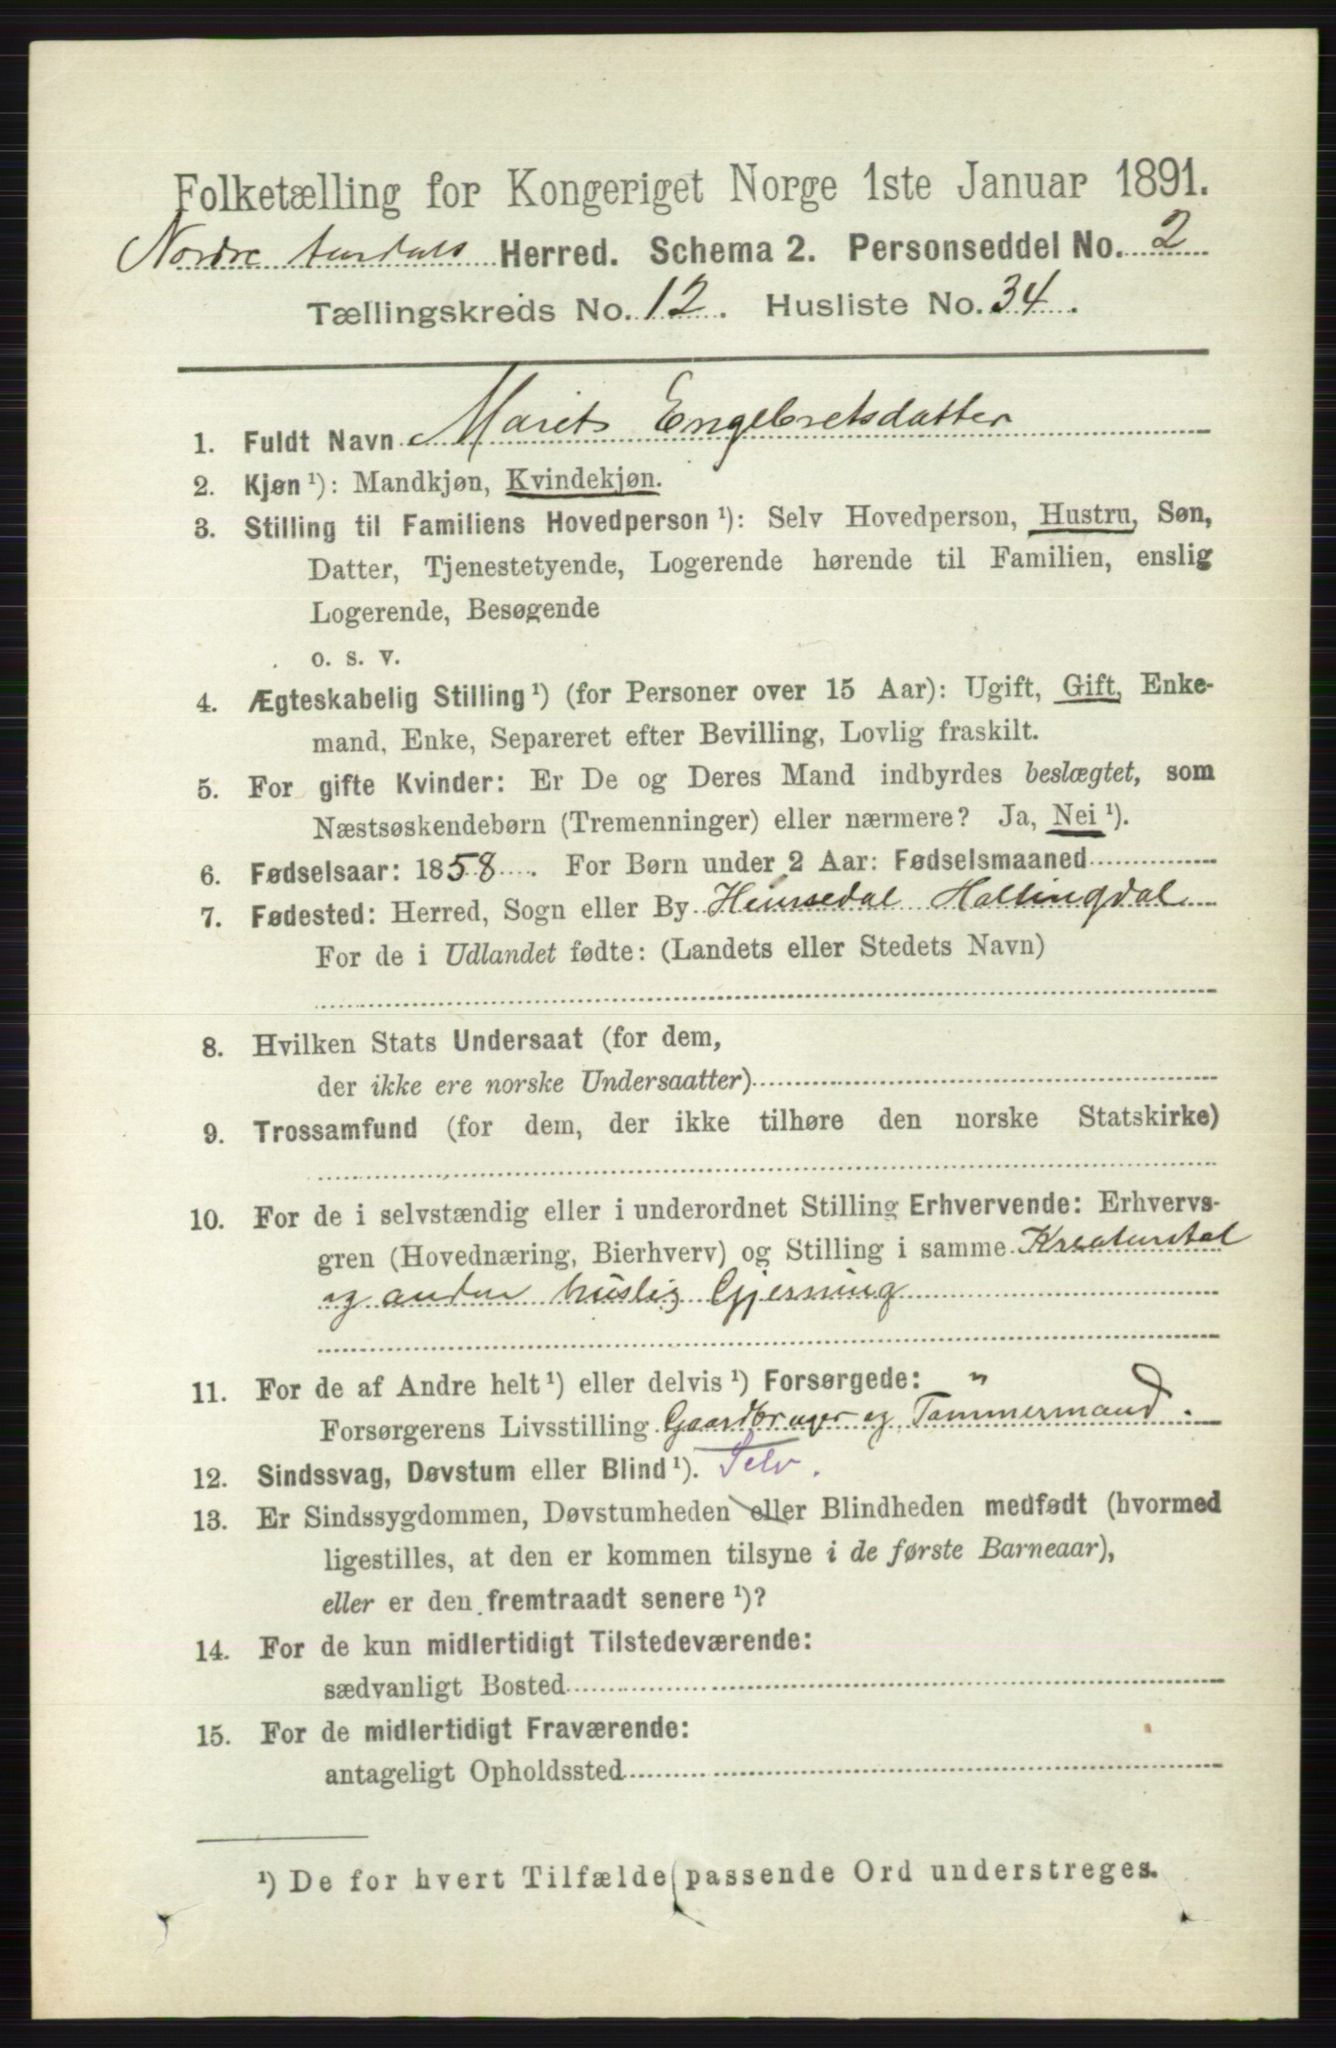 Folketælling for Kongeriget Norge 1ste Januar 1891.
Nordre Aurdals Herred. Schema 2. Personseddel No. 2
Tællingskreds No. 12. Husliste No. 34.
1. Fuldt Navn Marit Engebretsdatter
2. Kjøn ¹): Mandkjøn, Kvindekjøn.
3. Stilling til Familiens Hovedperson ¹): Selv Hovedperson, Hustru, Søn,
Datter, Tjenestetyende, Logerende hørende til Familien, enslig
Logerende, Besøgende
o. s. v.
4. Ægteskabelig Stilling ¹) (for Personer over 15 Aar): Ugift, Gift, Enke-
mand, Enke, Separeret efter Bevilling, Lovlig fraskilt.
5. For gifte Kvinder: Er De og Deres Mand indbyrdes beslægtet, som
Næstsøskendebørn (Tremenninger) eller nærmere? Ja, Nei ¹).
6. Fødselsaar: 1858. For Børn under 2 Aar: Fødselsmaaned
7. Fødested: Herred, Sogn eller By Hemsedal Hallingdal
For de i Udlandet fødte: (Landets eller Stedets Navn)
8. Hvilken Stats Undersaat (for dem,
der ikke ere norske Undersaatter)
9. Trossamfund (for dem, der ikke tilhøre den norske Statskirke)
10. For de i selvstændig eller i underordnet Stilling Erhvervende: Erhvervs-
gren (Hovednæring, Bierhverv) og Stilling i samme Kreaturstel
og anden huslig Gjerning
11. For de af Andre helt ¹) eller delvis ¹) Forsørgede: "
Forsørgerens Livsstilling Gaardbruger og Tømmermand.
12. Sindssvag, Døvstum eller Blind ¹). Selv.
13. Er Sindssygdommen, Døvstumheden eller Blindheden medfødt (hvormed
ligestilles, at den er kommen tilsyne i de første Barneaar),
eller er den fremtraadt senere ¹)?
14. For de kun midlertidigt Tilstedeværende:
sædvanligt Bosted
15. For de midlertidigt Fraværende:
antageligt Opholdssted
¹) De for hvert Tilfælde passende Ord understreges.